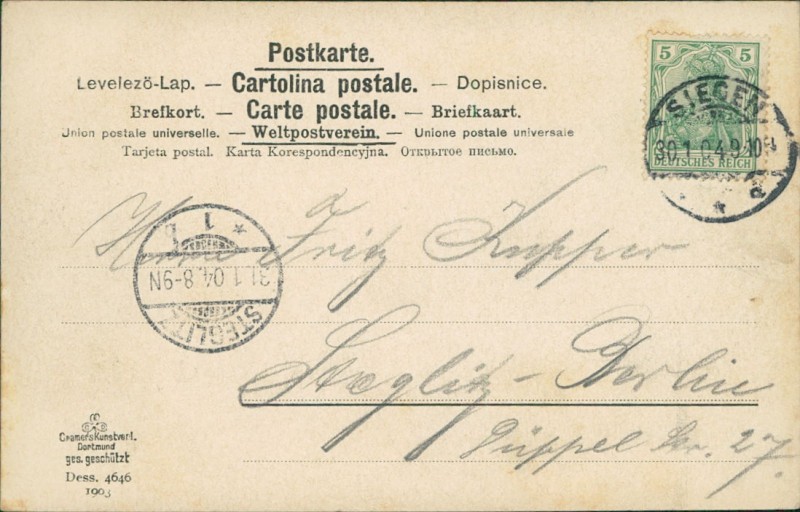 Postkarte.
Levelező-Lap. — Cartolina postale. — Dopisnice.
Brefkort. — Carte postale. — Briefkaart.
Union postale universelle. — Weltpostverein. — Unione postale universale
Tarjeta postal. Karta Korespondencyjna. Открытое письмо.
5 5
DEUTSCHES REICH
SIEGEN
30.1.04.9-10
STEGLITZ
31.1.04.8-9N
1
Herrn Fritz Kupper
Steglitz-Berlin
Düppel Str. 27.
Cramers Kunstverl.
Dortmund
ges. geschützt
Dess. 4646
1903